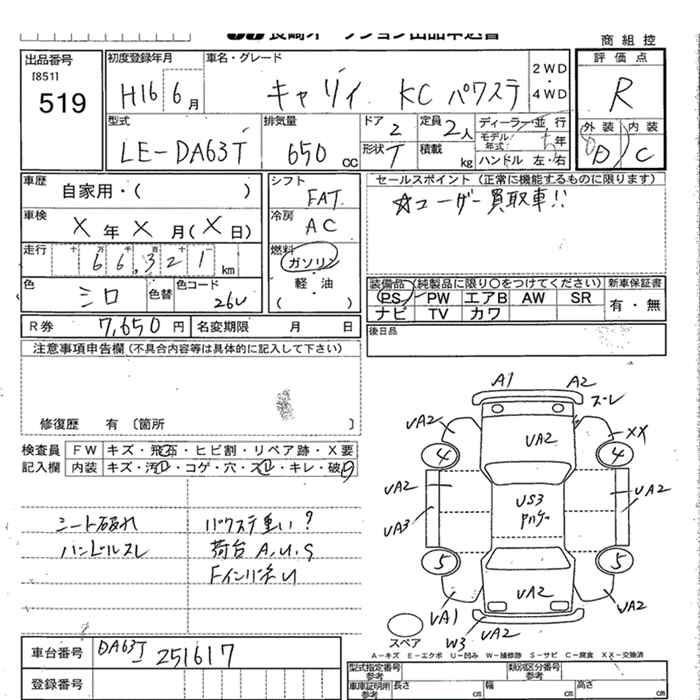 商組控
出品番号
[851]
519
初度登録年月
H16 6月
車名・グレード
キャリィ KC パワステ
2WD
4WD
評価点
R
型式
LE-DA63T
排気量
650 cc
ドア 2
形状 T
定員 2人
積載 kg
ディーラー・並行
モデル年式: 年
ハンドル 左・右
外装 内装
D C
車歴
自家用・( )
車検
X年X月(X日)
走行
十万千百十一
66,321 km
色
シロ
色替
色コード
26U
シフト
FAT
冷房
AC
燃料
ガソリン
・
軽・油
( )
R券 7,650円 名変期限 月 日
セールスポイント (正常に機能するものに限ります)
☆ユーザー買取車!!
装備品 (純製品に限り○をつけてください)
新車保証書
PS PW エアB AW SR
ナビ TV カワ
有・無
後日品
注意事項申告欄 (不具合内容等は具体的に記入して下さい)
修復歴 有 〔箇所 〕
検査員
記入欄
FW キズ・飛石・ヒビ割・リペア跡・X要
内装 キズ・汚レ・コゲ・穴・スレ・キレ・破レ
シート破れ
ハンドルスレ
パワステ重い?
荷台A,U,S
FインパネU
A1 A2
スレ
UA2 XX
4 UA2 4
UA2 UA2 UA2
UA3 US3
5 5
UA2
UA1 UA2
W3 UA2
スペア
A-キズ E-エクボ U-凹み W-補修跡 S-サビ C-腐食 XX-交換済
車台番号 DA63T 251617
登録番号
型式指定番号 参考
類別区分番号 参考
車庫証明用 参考 長さ cm 幅 cm 高さ cm